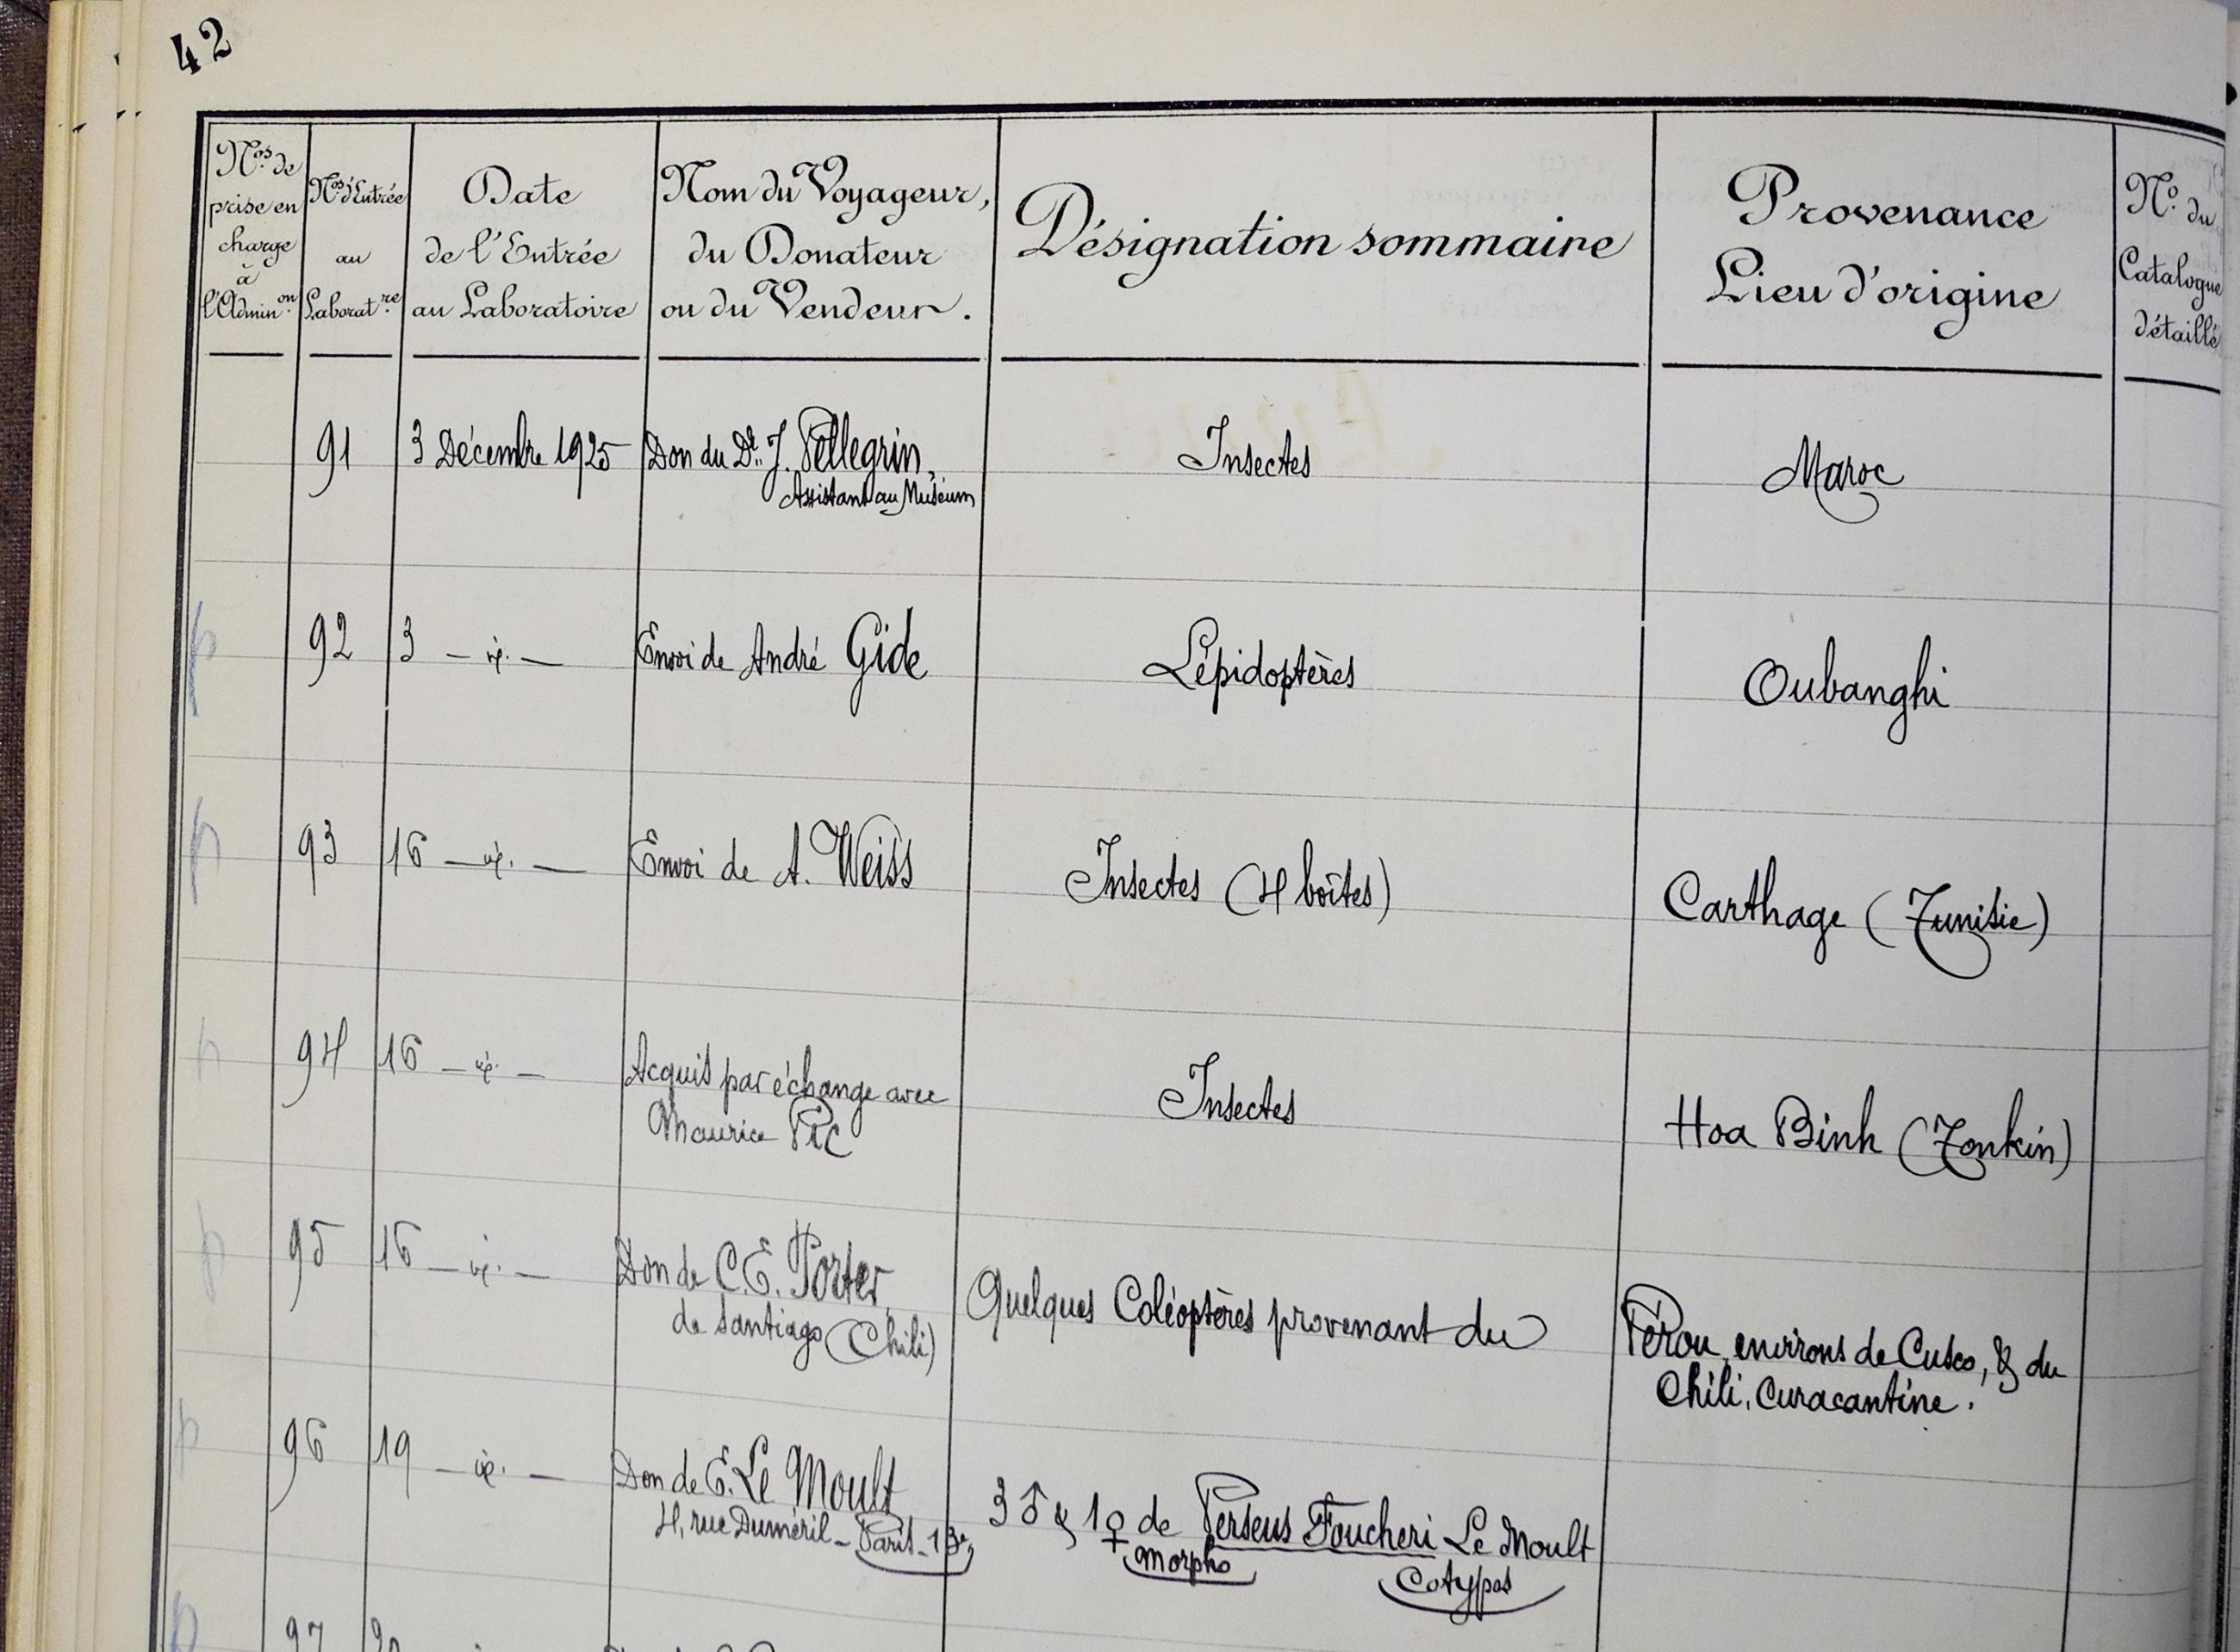 42
Nos. de prise en charge à l'Admin.on
Nos. d'Entrée au Laborat.re
Date de l'Entrée au Laboratoire
Nom du Voyageur, du Donateur ou du Vendeur.
Désignation sommaire
Provenance Lieu d'origine
No. du Catalogue détaillé
91 3 Décembre 1925 Don du Dr. J. Pellegrin, Insectes Maroc
Assistant au Muséum
92 3 — id. — Envoi de André Gide Lépidoptères Oubanghi
93 16 — id. — Envoi de A. Weiss Insectes (4 boîtes) Carthage (Tunisie)
94 16 — id. — Acquis par échange avec Insectes Hoa Binh (Tonkin)
Maurice Pic
95 16 — id. — Don de C.E. Porter, Quelques Coléoptères provenant du Pérou, environs de Cusco, & du
de Santiago (Chili) Chili, Curacantine.
96 19 — id. — Don de E. Le Moult 3 ♂ & 1 ♀ de Perseus Foucheri Le Moult
4, rue Duméril - Paris - 13e, Morpho Cotypes
97